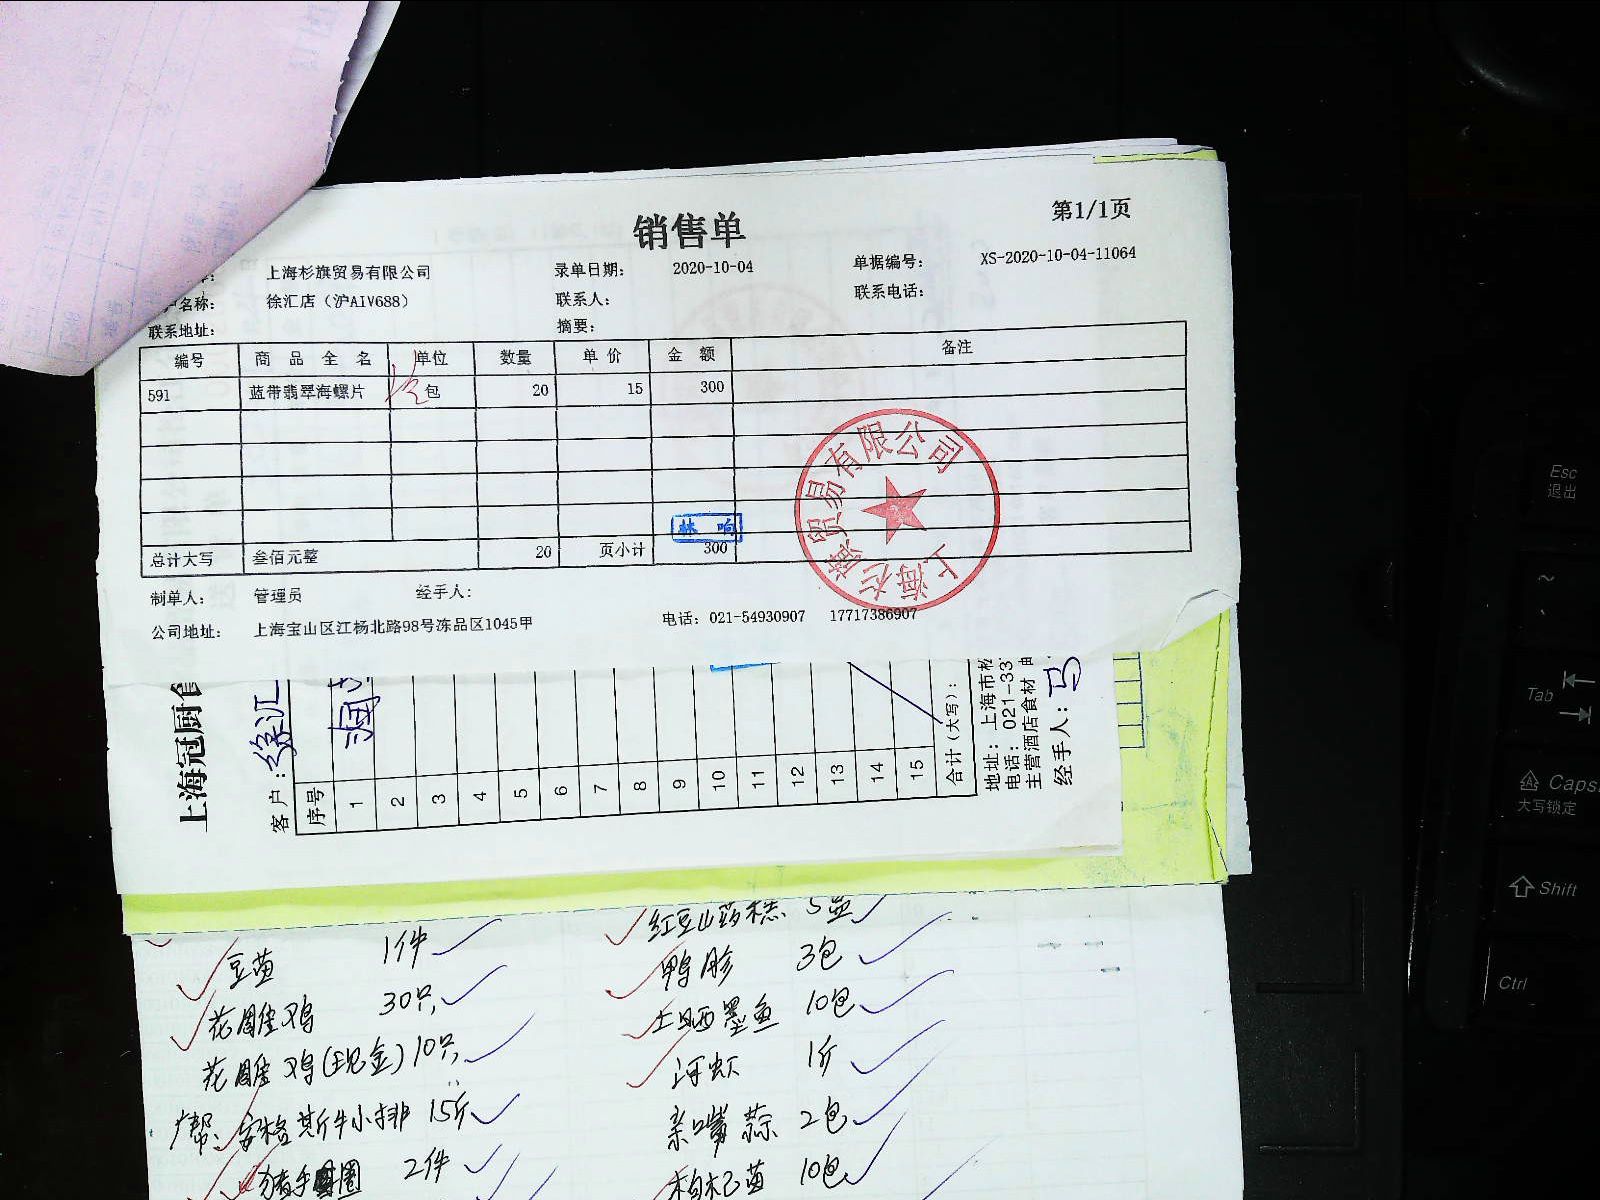 销售单
第1/1页
上海杉旗贸易有限公司 录单日期: 2020-10-04 单据编号: XS-2020-10-04-11064
户名称: 徐汇店（沪AIV688） 联系人: 联系电话:
联系地址: 摘要:
编号 商品全名 单位 数量 单价 金额 备注
591 蓝带翡翠海螺片 包 20 15 300
林 响
总计大写 叁佰元整 20 页小计 300
上海杉旗贸易有限公司
制单人: 管理员 经手人:
公司地址: 上海宝山区江杨北路98号冻品区1045甲 电话: 021-54930907 17717386907
上海冠厨食
客户: 徐汇
序号 1 2 3 4 5 6 7 8 9 10 11 12 13 14 15
合计(大写):
地址: 上海市松
电话: 021-33
主营酒店食材
经手人: 马
红豆山药糕 5盒
豆苗 1件
鸭胗 3包
花雕鸡 30只
土晒墨鱼 10包
花雕鸡(现金) 10只
河虾 1斤
帮: 安格斯牛小排 15斤
亲嘴蒜 2包
2件
枸杞苗 10包
Esc
退出
~
Tab
Caps
大写锁定
Shift
Ctrl